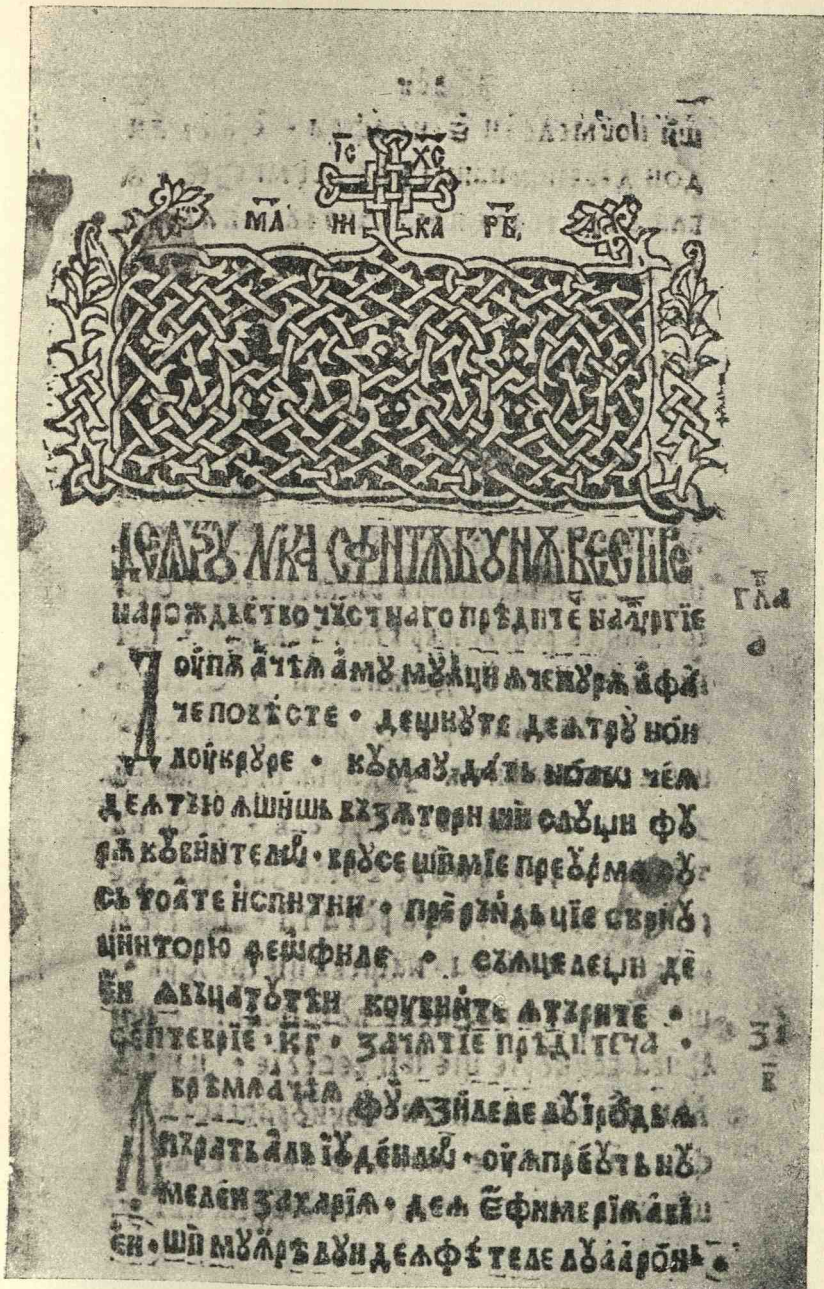 І҃С Х҃С
МА Ж КА РЬ
ДЕЛѪЗꙊ ЛꙊКА СФНТѪ БꙊНѪ ВЕСТИРЕ
на рождьство чьстнаго прѣдите на лтꙋргїе
гл҃а
Доупѫ ачѣѫ амꙋ мꙋлци ѫчепꙋрѫ афа
че повѣсте · дешнꙋте деѫтрꙋ нои
лоукрꙋре · кꙋмаꙋ дать ноаѡ чеѫ
деѫтѫю ѫшишь възѫтори ши слꙋџи фꙋ
рѫ кꙋвинтелѡ · врꙋсе шимїе преꙋрма
съ тоате испитии · прерѫндь ціе скрию
цинторю ѳеѡфиле · съѫцелеџи де
еи ѫвъцатꙋтеи коувинте ѫтърите ·
септеврїе · к҃г · зачѧтїе прѣдитеча ·
з҃а
в҃
врѣмѣачѣѫ фꙋ ѫзилеле лꙋ ірѡдь ѫ
пърать аль іꙋдеилѡ · оуѫпреꙋть нꙋ
мелеи захарїѧ · деѫ ефимерїѧ авї
еи · ши мꙋꙗрѣ лꙋи деѫ фетеле лꙋ аарѡнь ·